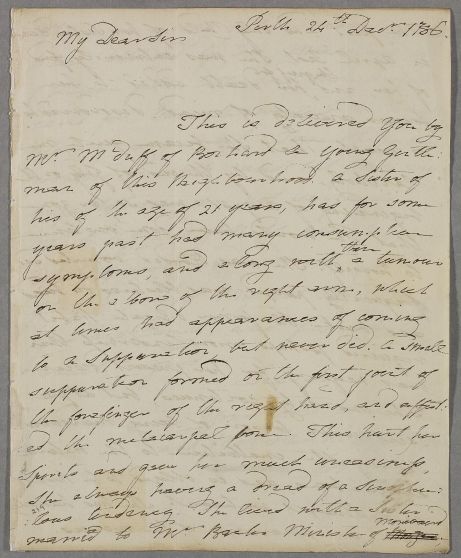 Perth 24th Decr. 1786.
My Dear Sir
This is delivered you by
Mr. McDuff of a young Gentle-
man of this Neighbourhood. a Sister of
his of the age of 21 years, has for some
years past had many consumptive
symptoms, and along with them a tumour
on the elbow of the right arm, which
at times had appearances of coming
to a Suppuration but never did. a small
suppuration formed on the first joint of
the forefinger of the right hand, and affect-
ed the metacarpal bone. This hurt her
Spirits and gave her much uneasiness,
she always having a dread of a Scrophu-
lous tendency. She lived with a Sister
married to Mr Minister of Moneydie